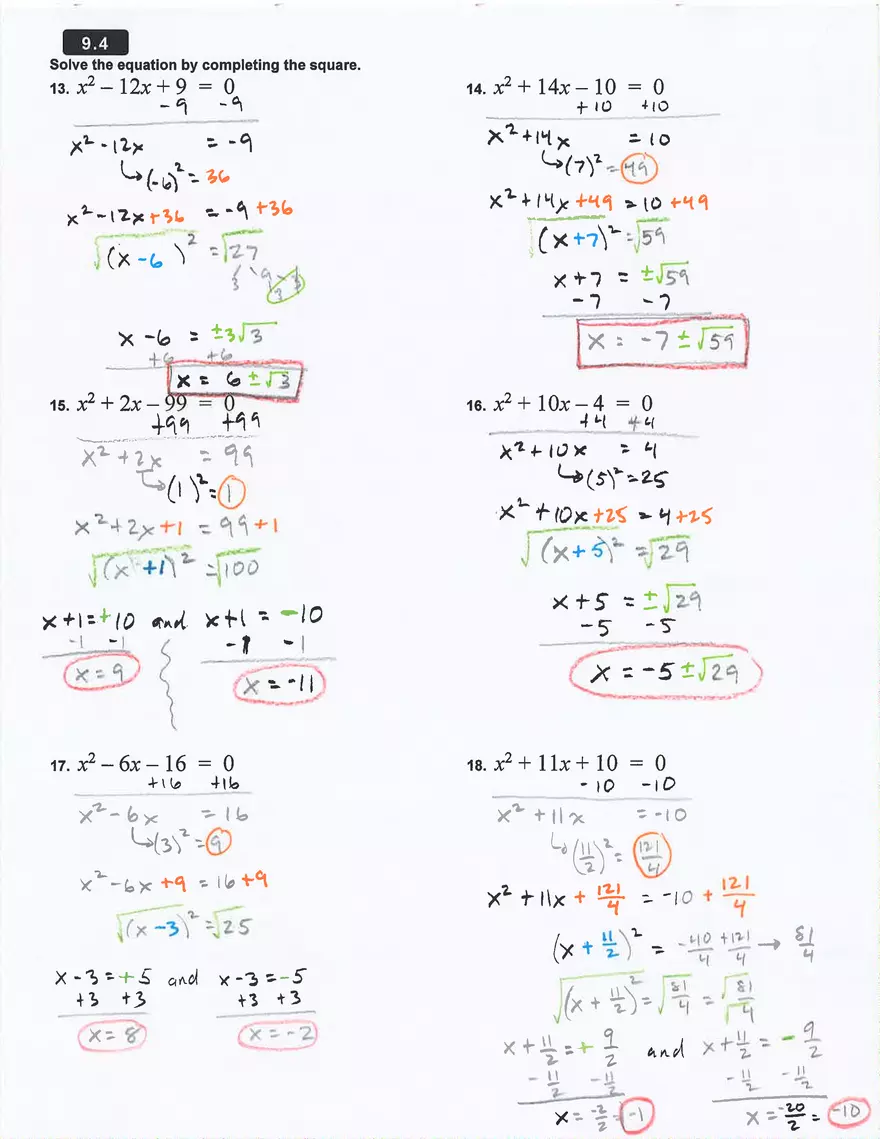 9.4
Solve the equation by completing the square.
13. x² – 12x + 9 = 0
- 9 - 9
x² - 12x = - 9
↳ (-6)² = 36
x² - 12x + 36 = - 9 + 36
√(x - 6)² = √27
3 9 3
3 3
x - 6 = ±3√3
+6 +6
x = 6 ± √3
14. x² + 14x – 10 = 0
+ 10 + 10
x² + 14x = 10
↳ (7)² = 49
x² + 14x + 49 = 10 + 49
√(x + 7)² = √59
x + 7 = ±√59
- 7 - 7
x = -7 ± √59
15. x² + 2x – 99 = 0
+99 +99
x² + 2x = 99
↳ (1)² = 1
x² + 2x + 1 = 99 + 1
√(x + 1)² = √100
x + 1 = + 10 and x + 1 = - 10
- 1 - 1 - 1 - 1
x = 9 x = -11
16. x² + 10x – 4 = 0
+ 4 + 4
x² + 10x = 4
↳ (5)² = 25
x² + 10x + 25 = 4 + 25
√(x + 5)² = √29
x + 5 = ±√29
- 5 - 5
x = -5 ± √29
17. x² – 6x – 16 = 0
+16 +16
x² - 6x = 16
↳ (3)² = 9
x² - 6x + 9 = 16 + 9
√(x - 3)² = √25
x - 3 = + 5 and x - 3 = - 5
+3 +3 +3 +3
x = 8 x = -2
18. x² + 11x + 10 = 0
- 10 - 10
x² + 11x = -10
↳ (11/2)² = 121/4
x² + 11x + 121/4 = -10 + 121/4
(x + 11/2)² = -40/4 + 121/4 → 81/4
√(x + 11/2)² = √81/4 = √81/√4
x + 11/2 = + 9/2 and x + 11/2 = - 9/2
- 11/2 - 11/2 - 11/2 - 11/2
x = -2/2 = -1 x = -20/2 = -10